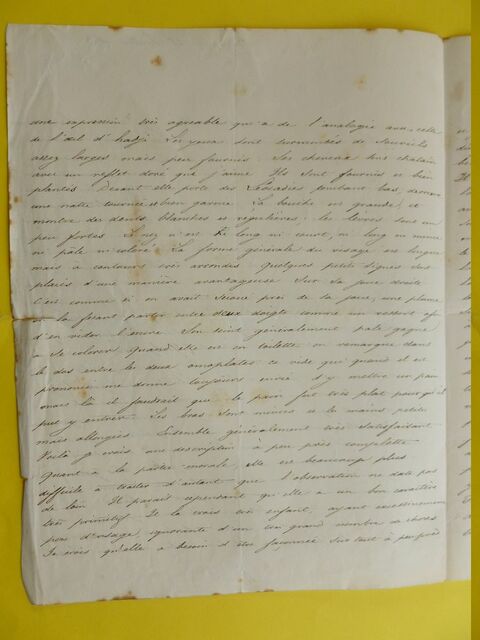 une expression très agréable qui a de l'analogie avec celle
de l'œil d'hadji. Les yeux sont surmontés de sourcils
assez larges mais peu fournis. Ses cheveux sont chatain
avec un reflet doré que j'aime. Ils sont fournis et bien
plantés Devant elle porte des tombant bas, derrière
une natte tournée et bien garnie. La bouche est grande, et
montre des dents blanches et régulières: les lèvres sont un
peu fortes. Le nez n'est ni long ni court, ni long ni mince
ni pale ni coloré. La forme générale du visage est longue
mais à contours très arrondis. Quelques petits signes sont
placés d'une manière avantageuse sur sa joue droite
C'est comme si on avait secoué près de sa face, une plume
en la fesant partir entre deux doigts comme un ressort afin
d'en vider l'encre. Son teint généralement pale gagne
à se colorer. Quand elle est en toilette on remarque dans
le dos entre les deux omoplates ce vide qui quand il est
prononcé me donne toujours envie d'y mettre un pain
mais là il faudrait que le pain fut très plat pour qu'il
put y entrer. Les bras sont minces et les mains petites
mais allongées. Ensemble généralement très satisfaisant
Voilà je crois une description à peu près complette
Quant à la partie morale, elle est beaucoup plus
difficile à traiter d'autant que l'observation ne date pas
de loin. Il parait cependant qu'elle a un bon caractère
très primitif. Je la crois très enfant, ayant excessivement
peu d'usage, ignorante d'un très grand nombre de choses
Je crois qu'elle a besoin d'être façonnée sur tout à peu près